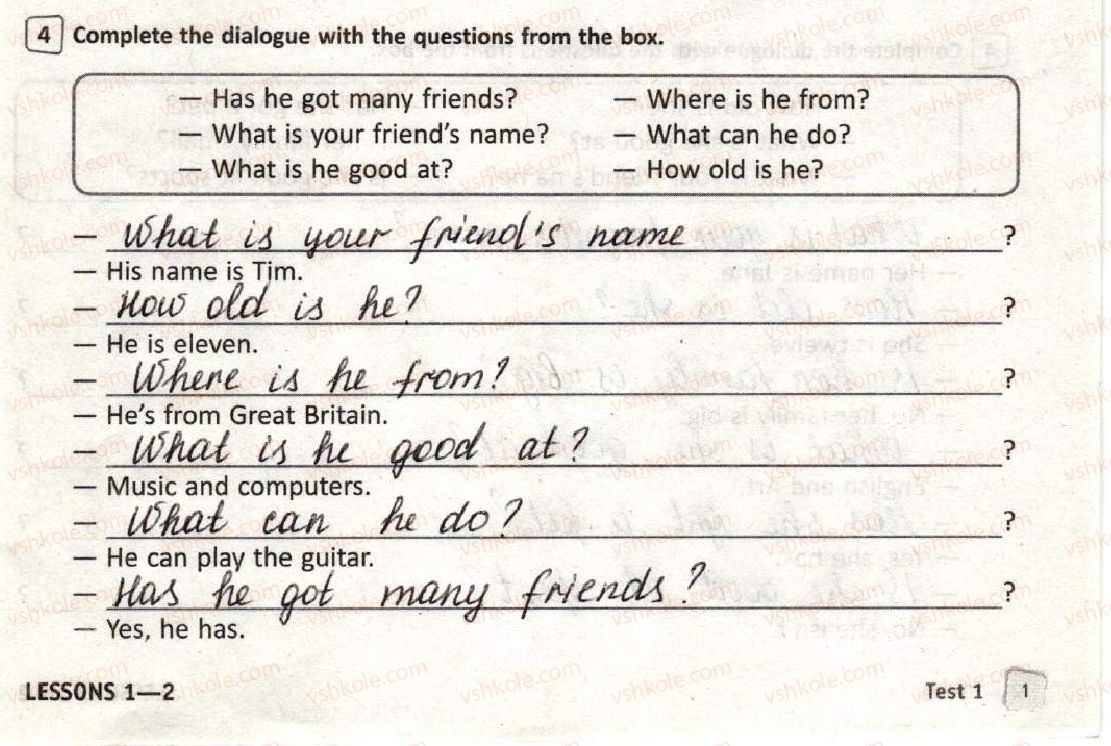 4 Complete the dialogue with the questions from the box.
— Has he got many friends? — Where is he from?
— What is your friend's name? — What can he do?
— What is he good at? — How old is he?
— What is your friend's name ?
— His name is Tim.
— How old is he? ?
— He is eleven.
— Where is he from? ?
— He's from Great Britain.
— What is he good at? ?
— Music and computers.
— What can he do? ?
— He can play the guitar.
— Has he got many friends? ?
— Yes, he has.
LESSONS 1—2 Test 1 1
vshkole.com